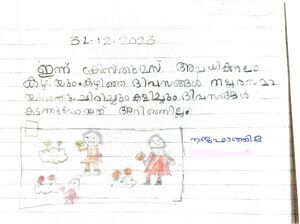 31.12.2023
ഇന്ന് ക്രിസ്തുമസ് അവധിക്കാലം
കഴിയും. കഴിഞ്ഞ ദിവസങ്ങൾ നല്ല രസമാ
യിരുന്നു. ചിരിച്ചും കളിച്ചും ദിവസങ്ങൾ
കടന്നുപോയത് അറിഞ്ഞില്ല.
നന്മഫാത്തിമ